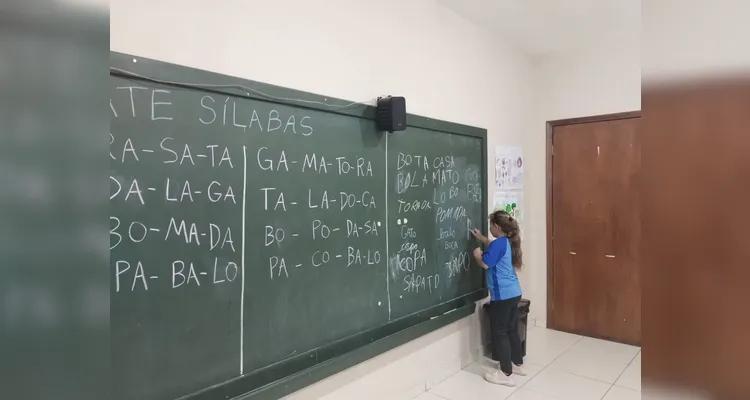 ATE SÍLABAS
RA-SA-TA
DA-LA-GA
BO-MA-DA
PA-BA-LO
GA-MA-TO-RA
TA-LA-DO-CA
BO-PO-DA-SA
PA-CO-BA-LO
BOTA CASA
BOLA MATO
LOBO
GATO
BOCA
COPA
SAPO
SAPATO